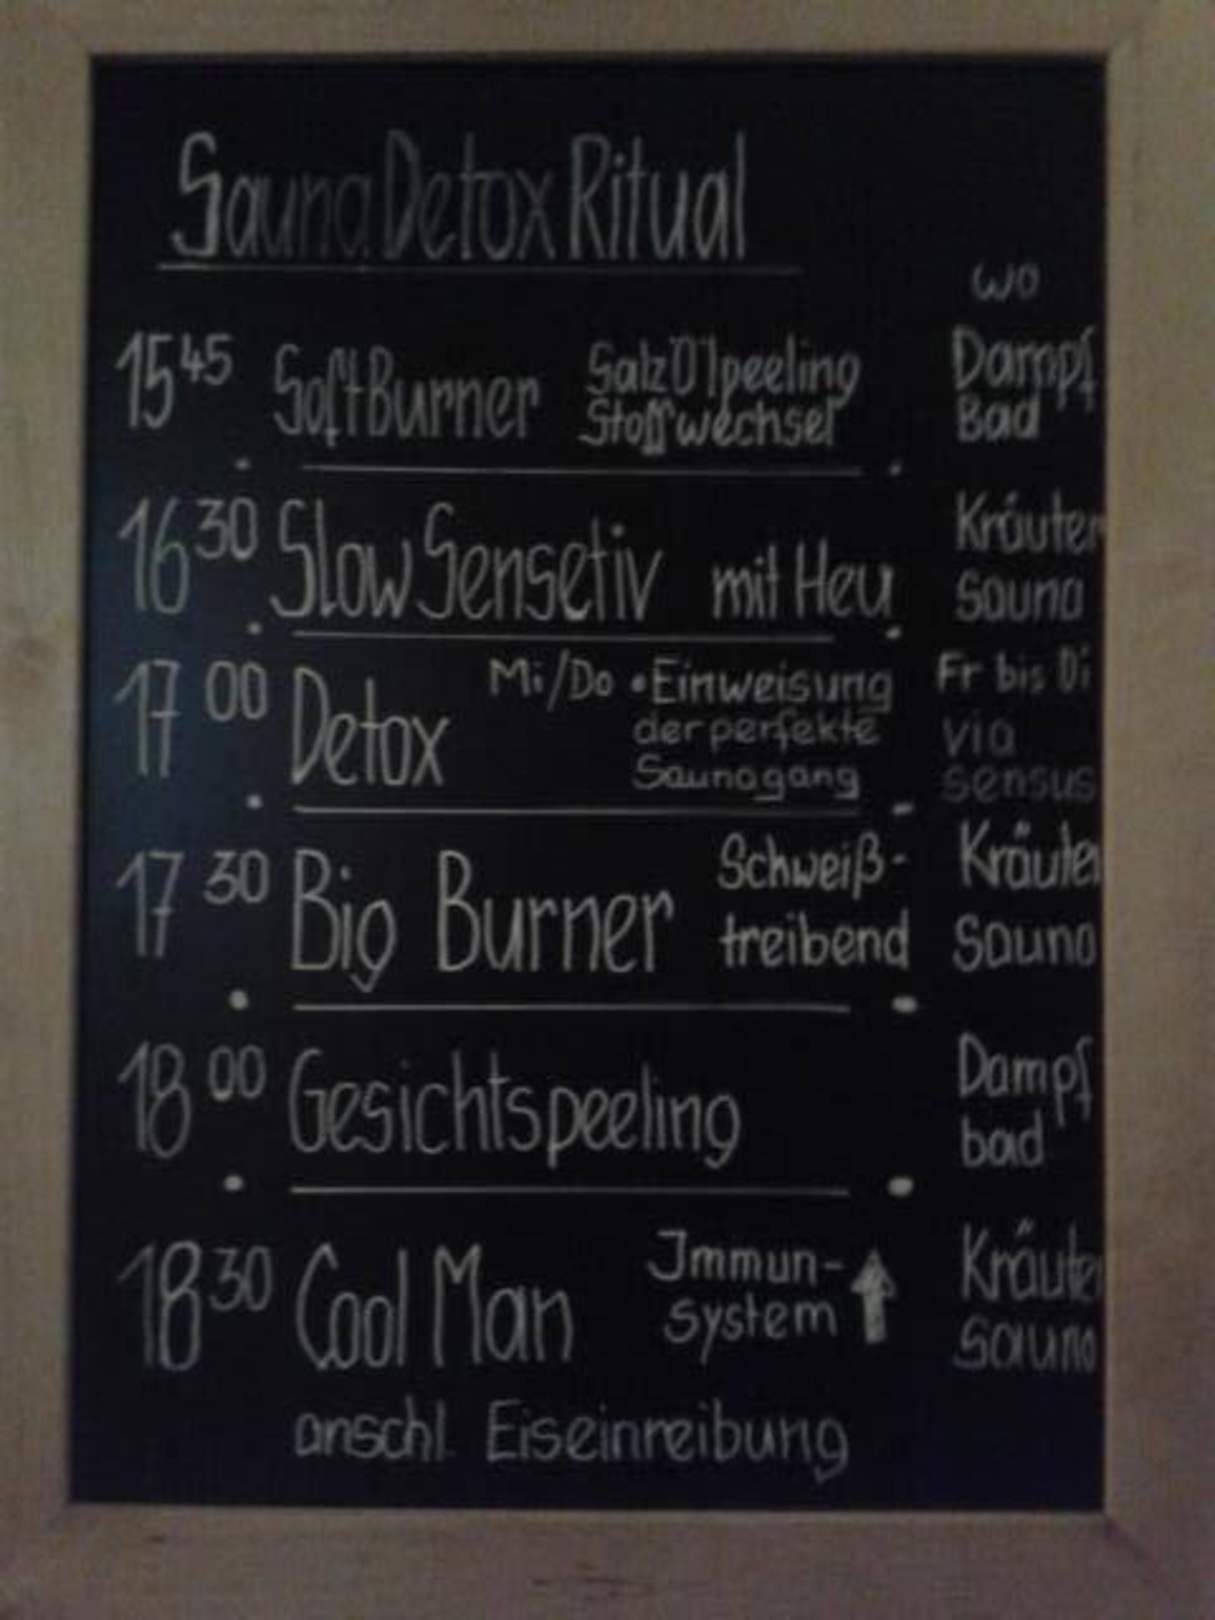 Sauna Detox Ritual
wo
15 45 SoftBurner Salz Ölpeeling Dampf
Stoffwechsel Bad
16 30 Slow Sensetiv mit Heu Kräuter
sauna
17 00 Detox Mi/Do • Einweisung Fr bis Di
der perfekte via
Saunagang sensus
17 30 Big Burner Schweiß- Kräuter
treibend Sauna
18 00 Gesichtspeeling Dampf
bad
18 30 Cool Man Immun- Kräuter
system sauna
anschl. Eiseinreibung